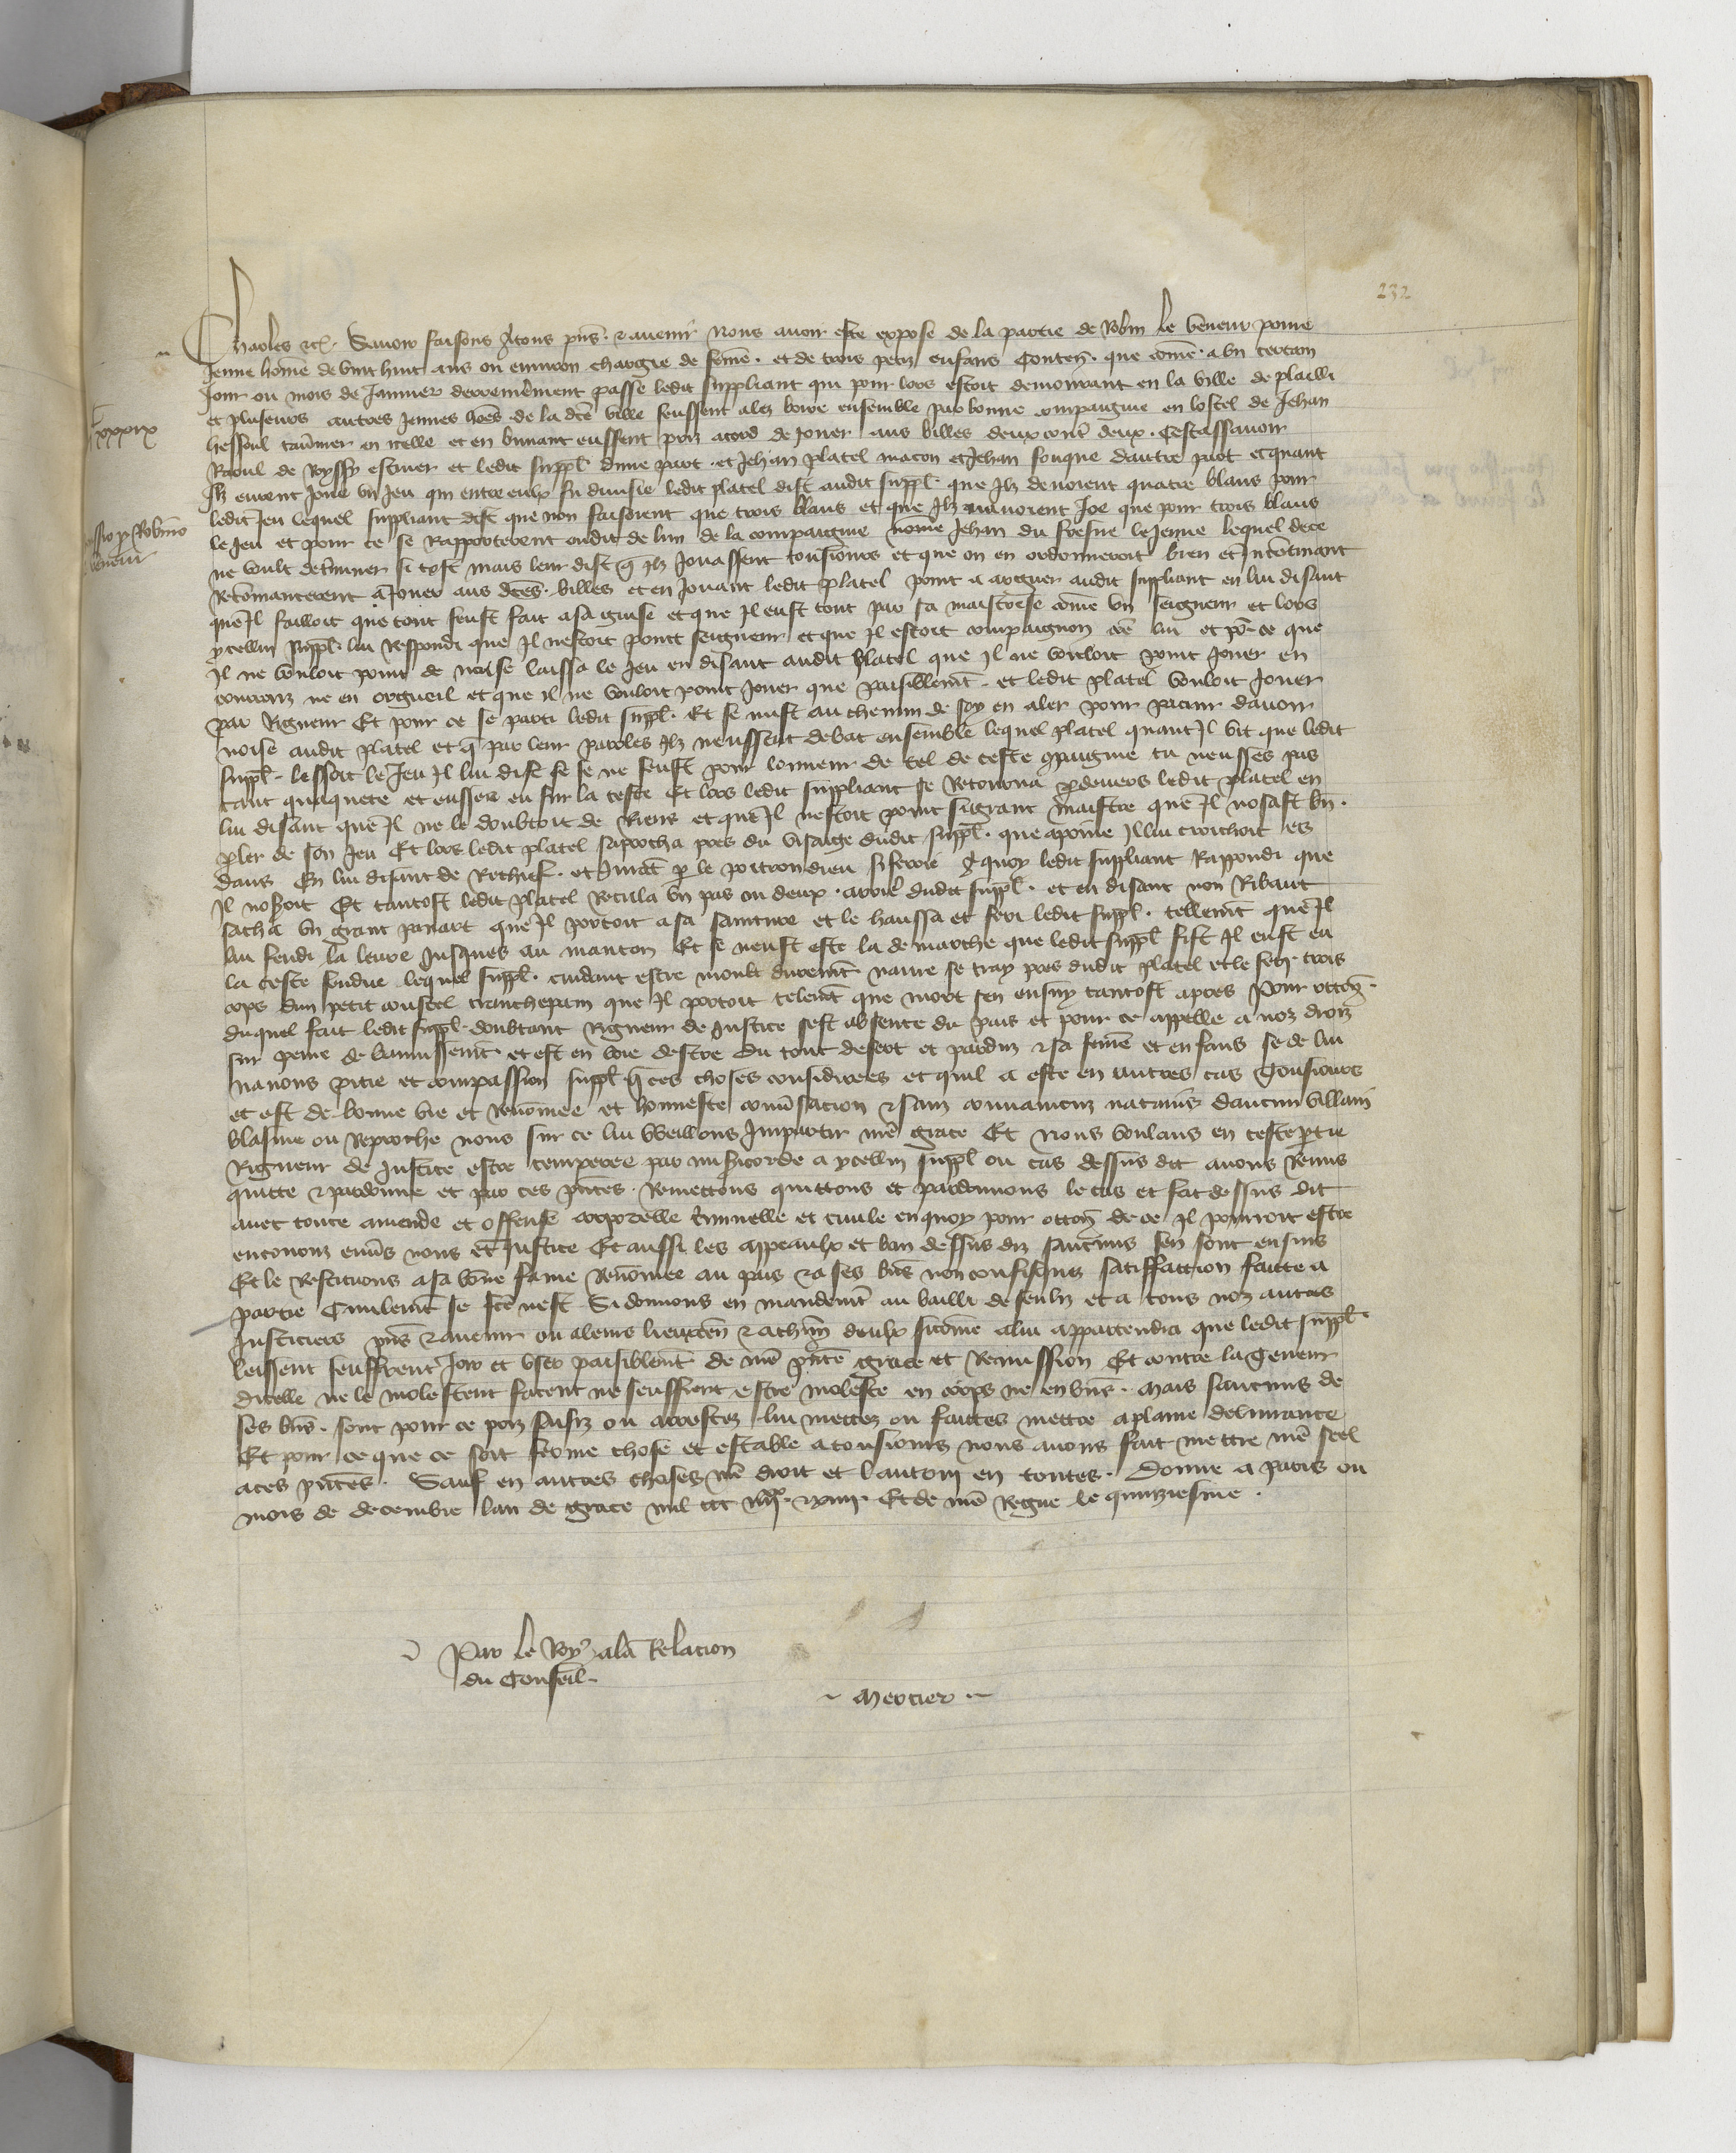 232
Charles etc. Savoir faisons a tous pns. et avenir nous avoir este expose de la partie de Robin le veneur povre
Jeune home de vint huit ans ou environ chargie de feme. et de trois petiz enfans Conten. que come a un certain
Jour ou mois de Janvier derrenierement passe ledit suppliant qui pour lors estoit demourant en la ville de plailli
et pluseurs autres Jeunes hoes de la dce ville feussent alez boire ensemble par bonne compaignie en lostel de Jehan
hessoul tavnier en icelle et en buvant eussent pris acord de Jouer aus billes deux cont deux. Cestassavoir
Raoul de Royssy escuier et ledit suppl dune part. et Jehan platel macon et Jehan fouque dautre part et quant
Ilz eurent Joue un Jeu qui entre eulx fu divisie ledit platel dist audit suppl. que Ilz devoient quatre blans pour
ledit Jeu lequel suppliant dist que non faisoient que trois blans et que Ilz navoient Joe que pour trois blans
le Jeu et pour ce se Rapporterent ou dit de lun de la compaignie nome Jehan du fresne le Jeune lequel de ce
ne voult detminer si tost mais leur dist q Ilz Jouassent tousiours et que on en ordonneroit bien et Incontinant
Recomancerent a Jouer aus dces. billes et en Jouant ledit platel print a arguer audit suppliant en lui disant
que Il failloit que tout feust fait a sa guise et que Il eust tout par sa maistrese come un seigneur et lors
ycellui suppl. lui Respondi que Il nestoit point seigneur et que Il estoit compaignon coe lui et po. ce que
Il ne vouloit point de noise laissa le Jeu en disant audit platel que Il ne vouloit point Jouer en
courrouz ne en orgueil et que il ne vouloit point Jouer que paisiblemt. et ledit platel vouloit Jouer
par Rigueur Et pour ce se parti ledit suppl. Et se mist au chemin de soy en aler pour paour davoir
noise audit platel et q par leur paroles Ilz neussent debat ensemble lequel platel quant Il vit que ledit
suppl. lessoit le Jeu Il lui dist se se ne feust pour lonneur de tel de ceste gpaignie tu neusses pas
tant quaquete et eusses eu sur la teste Et lors ledit suppliant se Retourna pdevers ledit platel en
lui disant que Il ne le doubtoit de Riens et que Il nestoit point si grant maistre que Il nosast bn.
pler de son Jeu Et lors ledit platel saprocha pres du visaige dudit suppl. que a poine Il lui touchoit es
dans En lui disant de Rechief. et Jurat p le poitron dieu si feroie p quoy ledit suppliant Rappondi que
Il noseroit Et tantost ledit platel Recula un pas ou deux. arrie dudit suppl. et en disant non Ribaut
sacha un grant panart que Il portoit a sa sainture et le haussa et feri ledit suppl. tellemt que Il
lui fendi la levre Jusques au manton Et se neust este la demarche que ledit suppl fist Il eust eu
la teste fendue lequel suppl. cuidant estre moult duremt navre se tray pres dudit platel et le feri trois
cops dun petit coustel tranchepain que Il portoit telemt que mort sen ensuy tantost apres Pour occon.
duquel fait ledit suppl. doubtant Rigueur de Justice sest absente du pais et pour ce appelle a noz droiz
sur peine de bannissemt. et est en voie destre du tout desert et pardu et sa feme et enfans se de lui
navons pitie et compassion suppl q ces choses considerees et quil a este en autres cas tousiours
et est de bonne vie et Renomee et honneste convsacion et sanz convaincuz natains daucun villain
blasme ou Reproche nous sur ce lui vveillons Impartir nre grace Et nous voulans en ceste ptie
Rigueur de Justice estre temperee par misericorde a ycellui suppl ou cas dessus dit avons Remis
quitte et pardonne et par ces pntes. Remettons quittons et pardonnons le cas et fait dessus dit
avec toute amende et offense corporelle criminelle et civile en quoy pour occon de ce Il pourroit estre
encouruz envs nous et Justice Et aussi les appeaulx et ban dessus diz saucuns sen sont ensuis
Et le Restituons a sa bone fame Renomee au pais et a ses bns non confisquez satiffaction faitte a
partie Civilemt se fce nest Si donnons en mandemt au bailli de senliz et a tous noz autres
Justiciers pns et avenir ou a leurs lieuxten et a chun deulx sicome a lui appartendra que ledit suppl.
leissent seuffrent Joir et user paisiblemt de nre pnte grace et Remission Et contre la teneur
dicelle ne le molestent facent ne seuffrent estre moleste en corps ne en bns. Mais saucuns de
ses bns. sont pour ce pris saisiz ou arrestez lui mettez ou faittes mettre a plaine delivrance
Et pour ce que ce soit ferme chose et estable a tousiours nous avons fait mettre nre seel
a ces pntes. Sauf en autres choses nre droit et lautruy en toutes. Donne a paris ou
mois de decembre lan de grace mil ccc iiiixx. et xiiii. Et de nre Regne le quinziesme.
Par le Roy a la Relacion
du Conseil.
Mercier